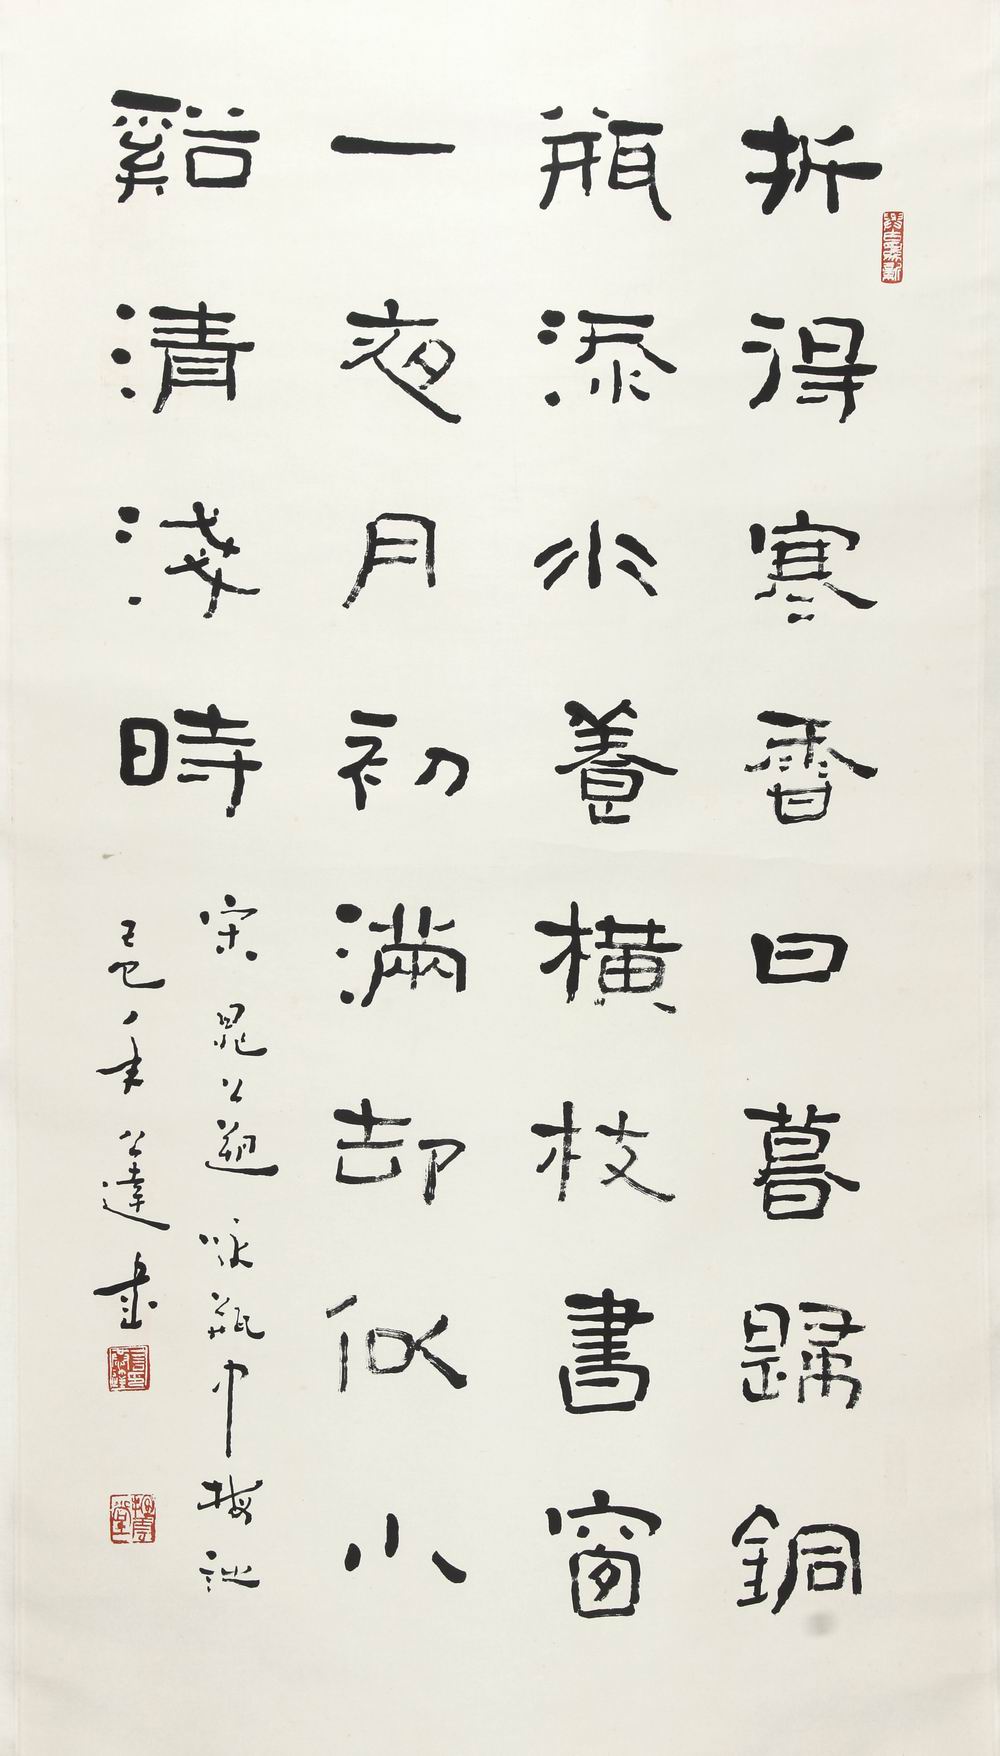 折得寒香日暮歸銅
瓶添水養橫枝書窗
一夜月初滿却似小
谿清淺時
宋晁公遡咏瓶中梅詩
己巳年公達書